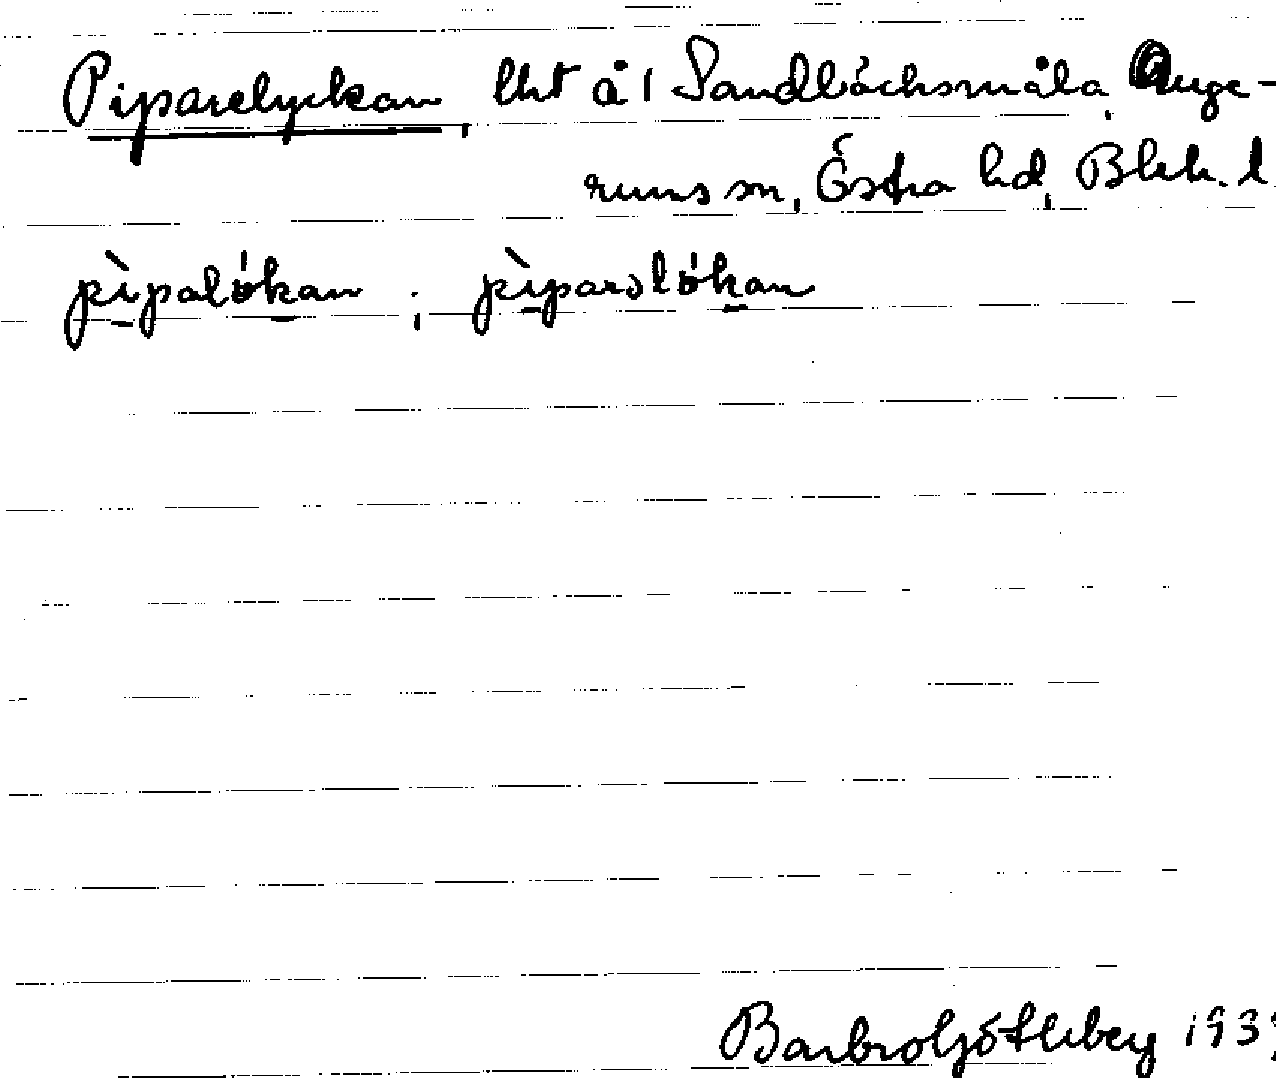 Piparelyckan, lht å 1 Sandbäcksmåla, Auge-
rums sn, Östra hd, Blek. l
pìpalö́kan ; pìparəlö́kan
Barbro Götheberg 193